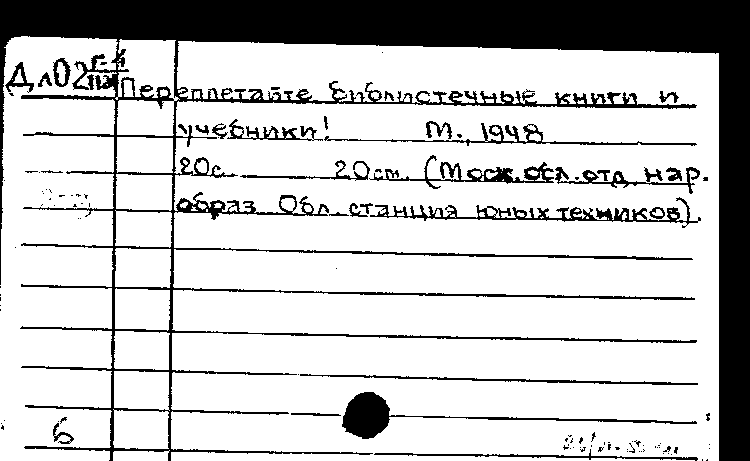 Переплетайте библиотечные книги и
учебники! М., 1948
20с. 20см. (Моск. обл. отд. нар.
образ. Обл. станция юных техников).
6